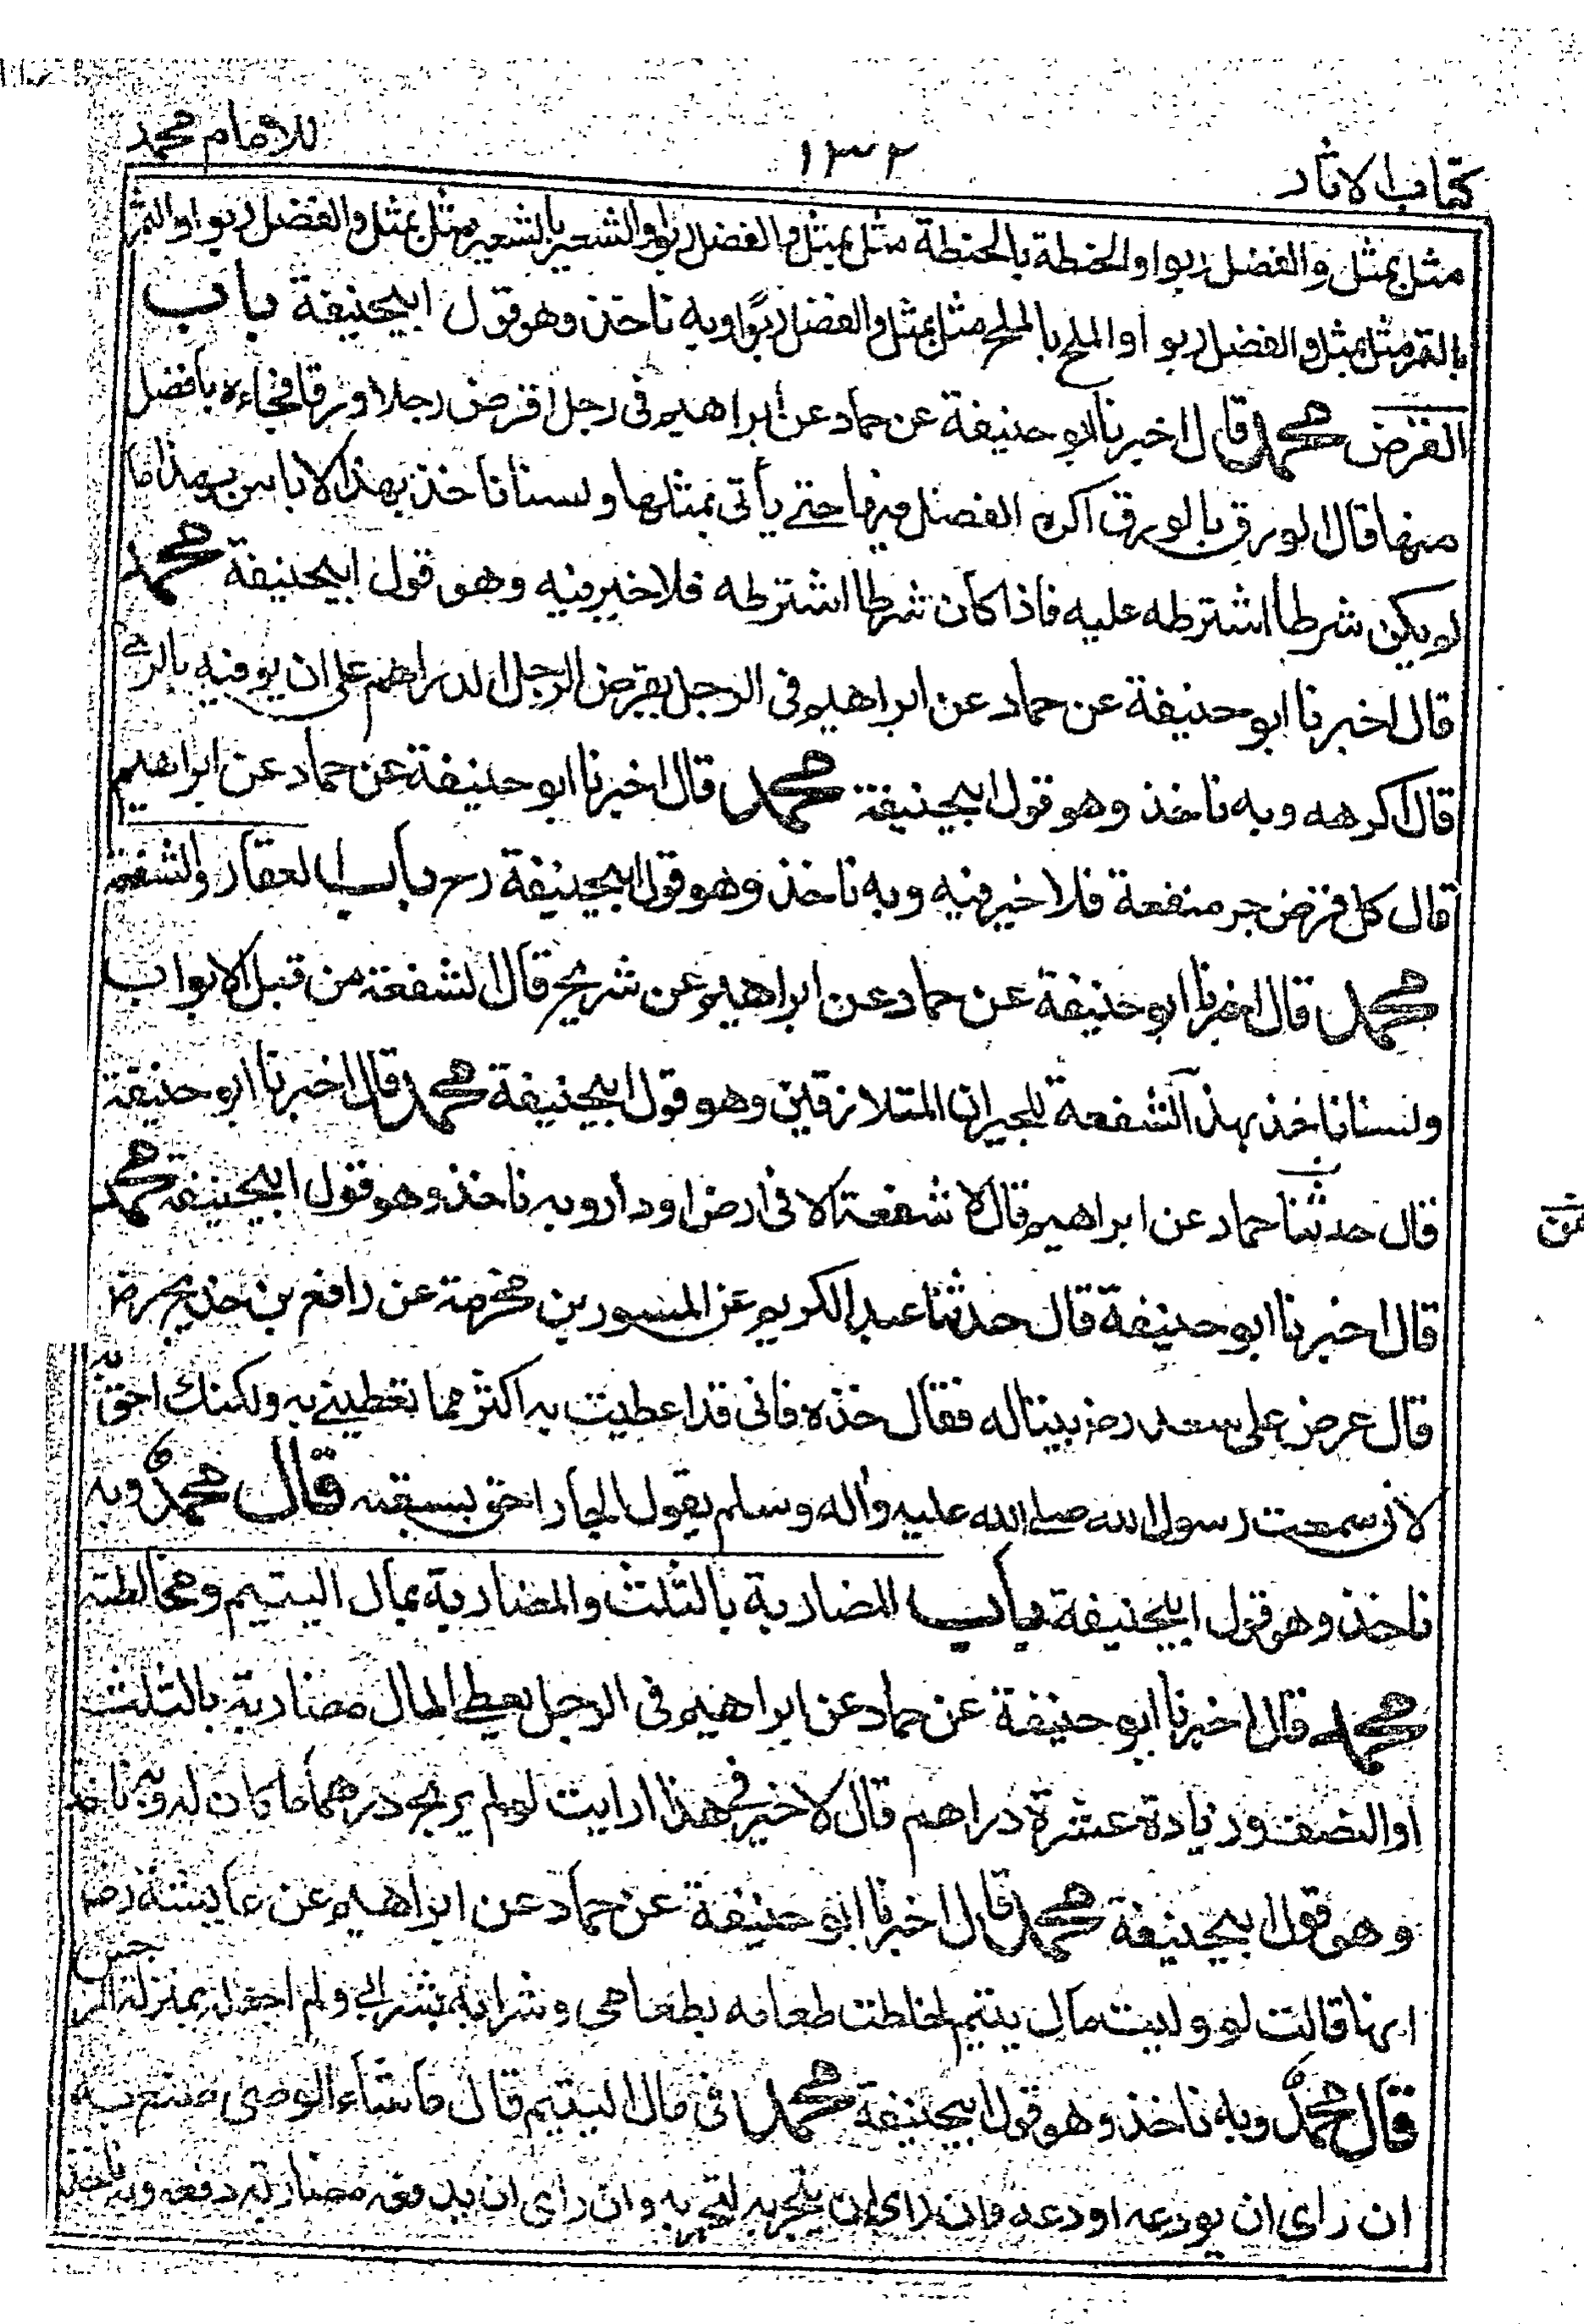 كتاب الاثار
١٣٢
للامام محمد
مثل بمثل والفضل ربوا والحنطة بالحنطة مثل بمثل والفضل ربوا والشعير بالشعير مثل بمثل والفضل ربوا والتمر
بالتمر مثل بمثل والفضل ربوا والملح بالملح مثل بمثل والفضل ربوا وبه ناخذ وهو قول ابيحنيفة باب
القرض محمد قال اخبرنا ابو حنيفة عن حماد عن ابراهيم في رجل اقرض رجلا ورقا فجاءه بافضل
منها قال الورق بالورق اكره الفضل فيها حتے يأتى بمثلها ولسنا ناخذ بهذا لا باس بهذا ما
لم يكن شرطا اشترطه عليه فاذا كان شرطا اشترطه فلا خير فيه وهو قول ابيحنيفة محمد
قال اخبرنا ابو حنيفة عن حماد عن ابراهيم فى الرجل يقرض الرجل الدراهم على ان يوفيه بالرے
قال اكرهه وبه ناخذ وهو قول ابيحنيفة محمد قال اخبرنا ابو حنيفة عن حماد عن ابراهيم
قال كل قرض جر منفعة فلا خير فيه وبه ناخذ وهو قول ابيحنيفة رح باب العقار والشفعة
محمد قال اخبرنا ابو حنيفة عن حماد عن ابراهيم عن شريح قال الشفعة من قبل الابواب
ولسنا ناخذ بهذا الشفعة للجيران المتلازقين وهو قول ابيحنيفة محمد قال اخبرنا ابو حنيفة
قال حدثنا حماد عن ابراهيم قال لا شفعة الا فى ارض او دار وبه ناخذ وهو قول ابيحنيفة محمد
قال اخبرنا ابو حنيفة قال حدثنا عبد الكريم عن المسور بن مخرمة عن رافع بن خديج رض
قال عرض على سعد رض بيتا له فقال خذه فانى قد اعطيت به اكثر مما تعطينے به ولكنك احق به
لانى سمعت رسول الله صلے الله عليه وآله وسلم يقول الجار احق بسقبه قال محمد وبه
ناخذ وهو قول ابيحنيفة باب المضاربة بالثلث والمضاربة بمال اليتيم ومخالطته
محمد قال اخبرنا ابو حنيفة عن حماد عن ابراهيم فى الرجل يعطے المال مضاربة بالثلث
او النصف وزيادة عشرة دراهم قال لا خير فى هذا ارايت لو لم يربح درهما ما كان له وبه ناخذ
وهو قول ابيحنيفة محمد قال اخبرنا ابو حنيفة عن حماد عن ابراهيم عن عايشة رض
انها قالت لو وليت مال يتيم لخلطت طعامه بطعامى وشرابه بشرابے ولم اجعله بمنزلة الرجس
قال محمد وبه ناخذ وهو قول ابيحنيفة محمد فى مال اليتيم قال ما شاء الوصى صنع به
ان راى ان يودعه اودعه فان راى ان يتجر به اتجر به وان راى ان يدفعه مضاربة دفعه وبه ناخذ